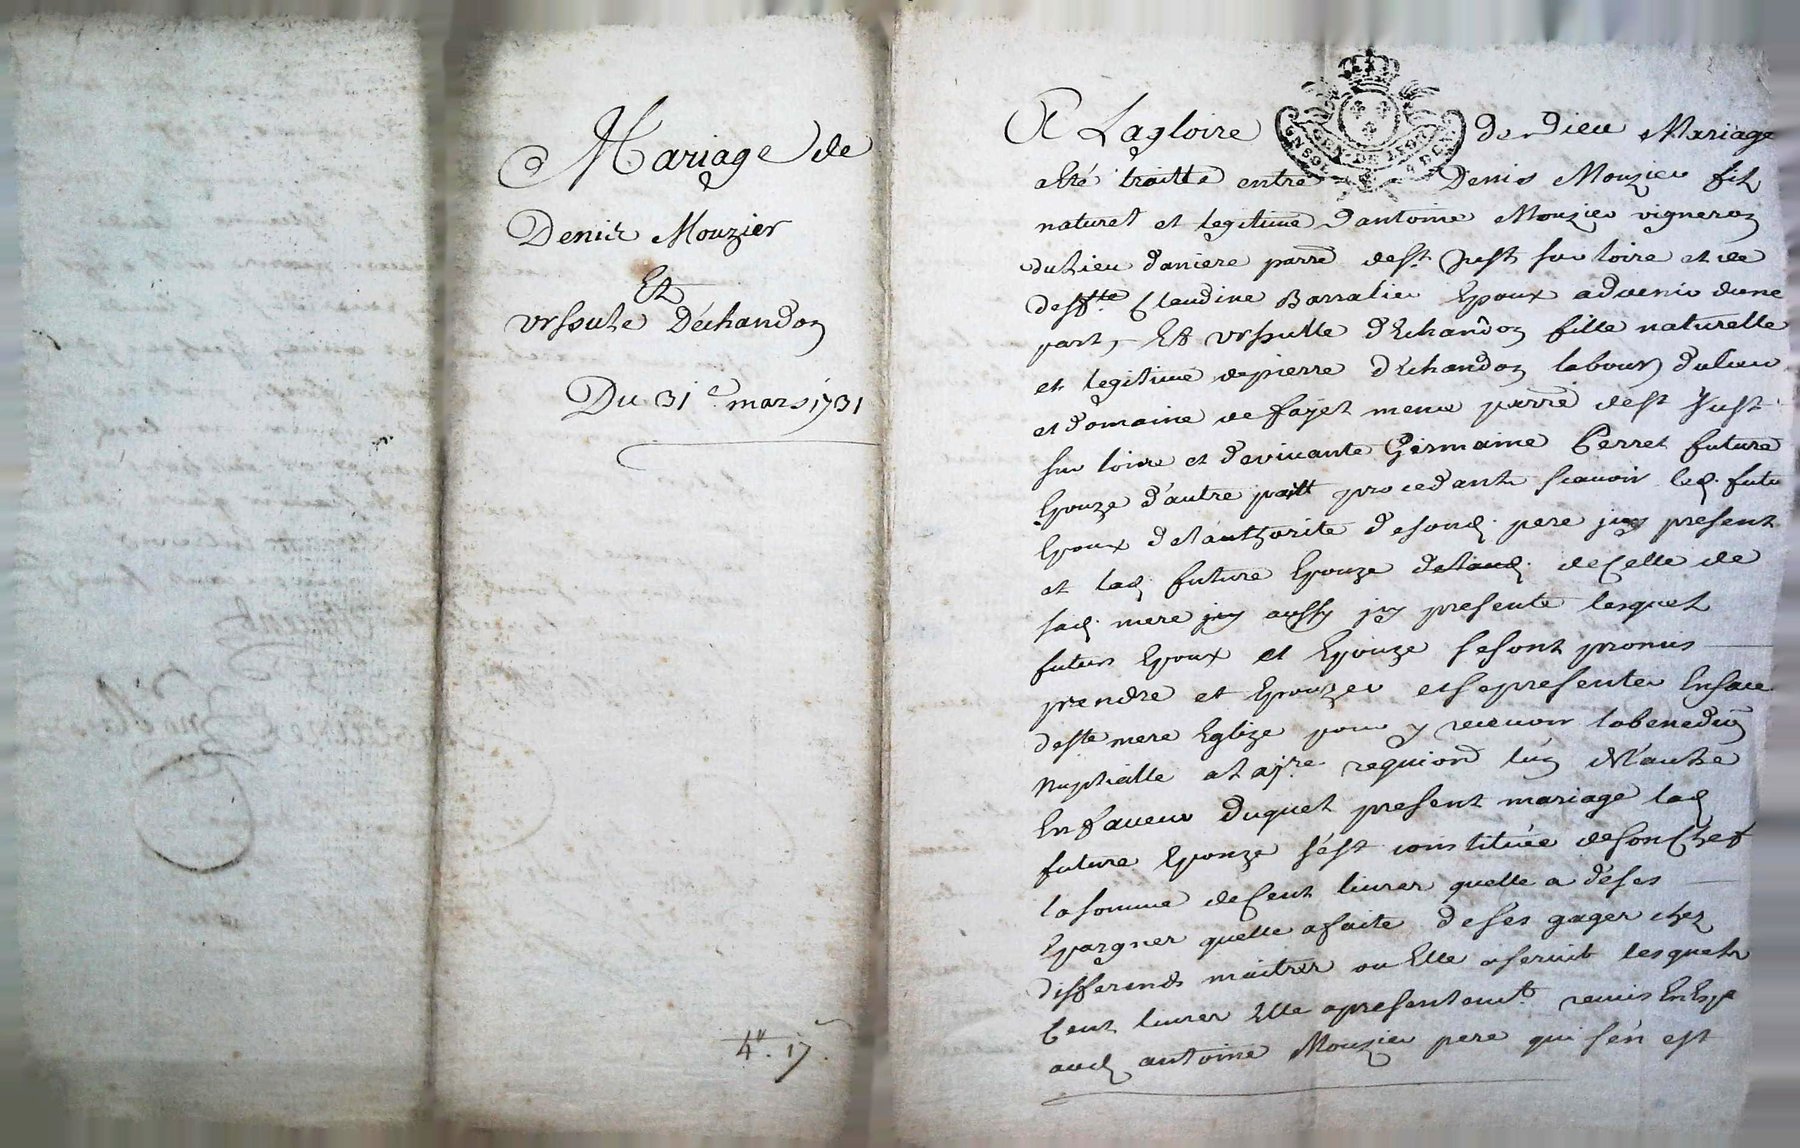 Mariage de
Denis Mouzier
Et
Urssule Déchandon
Du 31e mars 1731
4# 17
A Lagloire de Dieu Mariage
a été traitté entre Denis Mouzier fils
naturel et legitime d'antoine Mouzier vigneron
du lieu daniere parre de st Just sur loire et de
deffte Claudine Barralier Epoux advenir dune
part, Et Urssulle d'Echandon fille naturelle
et legitime de pierre d'échandon labour dulieu
et domaine de fayet meme parre de st Just
sur loire et devivante Germaine Perret future
Epouze d'autre part procedants scavoir led. futur
Epoux del'authorité desond. pere icy present
et lad. future Epouze de celle de
sad. mere icy aussy presente lesquels
futurs Epoux et Epouze sesont promis
prendre et Epouzer et se presenter En face
de ste mere Eglize pour y recevoir la benedion
Nuptialle a la requion lun de l'autre
En faveur duquel present mariage lad.
future Epouze s'est constituée de son Chef
la somme de Cent livres quelle a de ses
Epargnes quelle a faite de ses gages chez
differends maitres ou Elle a servit lesquels
Cent livres Elle a presentemt. remis
aud. antoine Mouzier pere qui s'en est